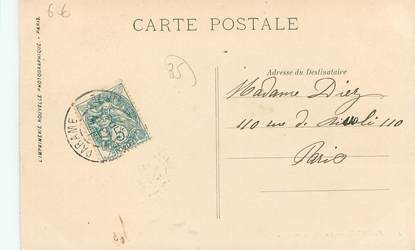 6€
CARTE POSTALE
35
Adresse du Destinataire
Madame Diez
110 rue de Rivoli 110
Paris
L'IMPRIMERIE NOUVELLE PHOTOGRAPHIQUE - PARIS.
PARAMÉ
5